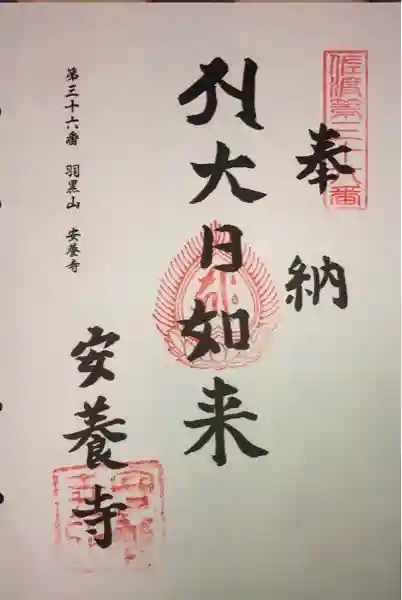 佐渡第三十六番
奉納
大日如来
第三十六番 羽黒山 安養寺
安養寺